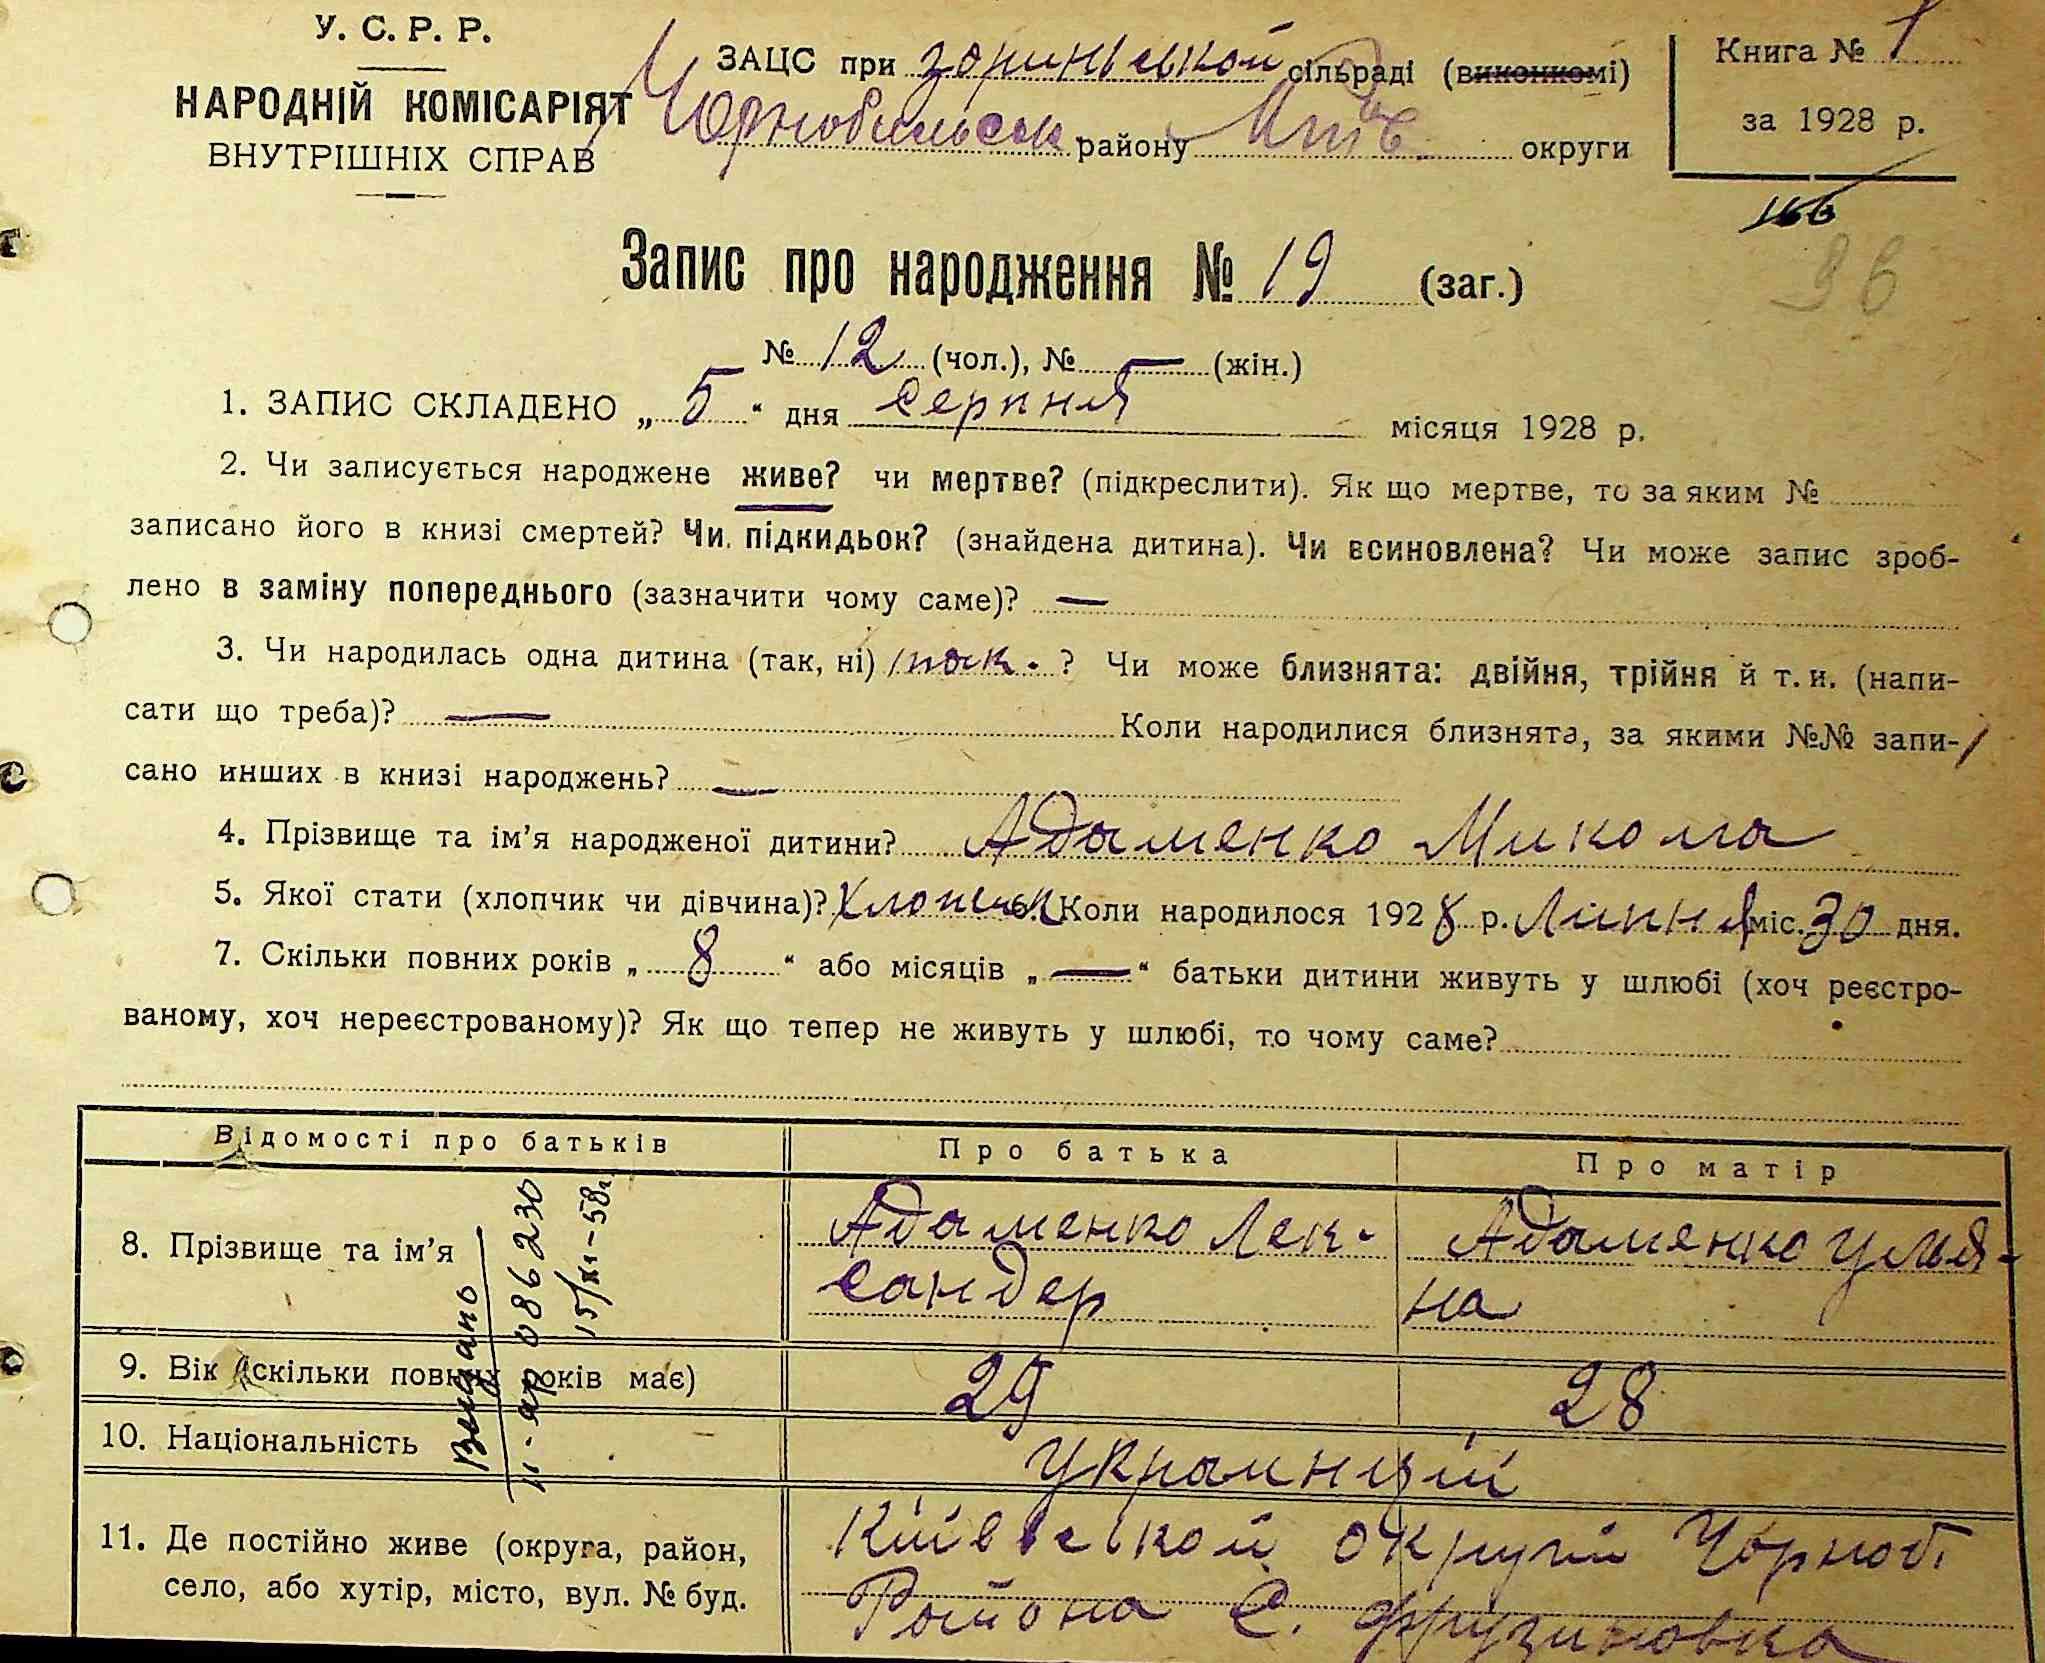 У. С. Р. Р.
НАРОДНІЙ КОМІСАРІЯТ
ВНУТРІШНІХ СПРАВ
ЗАЦС при зориньської сільраді (виконкомі)
Чорнобильськ району Київ округи
Книга № 1
за 1928 р.
166
36
Запис про народження № 19 (заг.)
№ 12 (чол.), № — (жін.)
1. ЗАПИС СКЛАДЕНО „ 5 “ дня серпня місяця 1928 р.
2. Чи записується народжене живе? чи мертве? (підкреслити). Як що мертве, то за яким №
записано його в книзі смертей? Чи підкидьок? (знайдена дитина). Чи всиновлена? Чи може запис зроб-
лено в заміну попереднього (зазначити чому саме)? —
3. Чи народилась одна дитина (так, ні) так. ? Чи може близнята: двійня, трійня й т. и. (напи-
сати що треба)? — Коли народилися близнята, за якими №№ запи-
сано инших в книзі народжень? —
4. Прізвище та ім’я народженої дитини? Адаменко Микола
5. Якої стати (хлопчик чи дівчина)? Хлопчик 6. Коли народилося 1928 р. Липня міс. 30 дня.
7. Скільки повних років „ 8 “ або місяців „ — “ батьки дитини живуть у шлюбі (хоч реєстро-
ваному, хоч нереєстрованому)? Як що тепер не живуть у шлюбі, то чому саме?
Відомості про батьків
Про батька
Про матір
8. Прізвище та ім’я
Адаменко Лек-
сандер
Адаменко Улья-
на
9. Вік (скільки повних років має)
29
28
10. Національність
Украинций
11. Де постійно живе (округа, район,
село, або хутір, місто, вул. № буд.
Київської округи Чорноб.
Района С. Фрузиновка
086230
15/XI-58г.